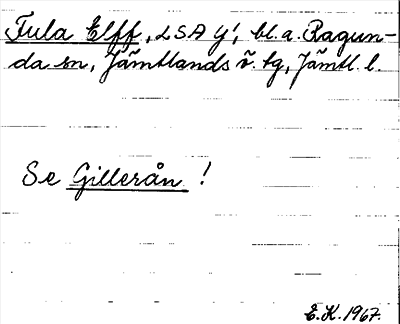 Fula Elff, LSA Y', bl.a. Ragun-
da sn, Jämtlands ö. tg, Jämtl. l.
Se Gillerån!
E.K. 1967.